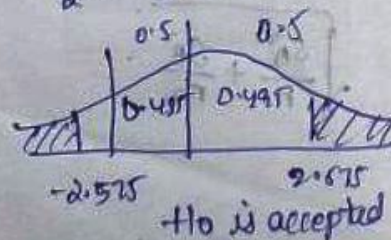 0.5 0.5
0.495 0.495
-2.575 2.575
Ho is accepted